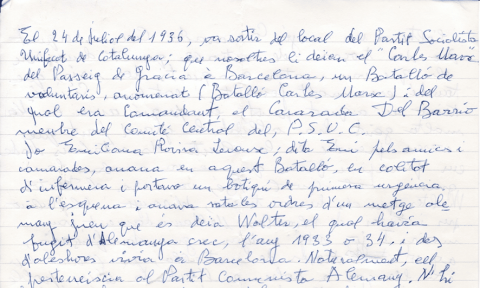 El 24 de Juliol del 1936, va sortir del local del Partit Socialista
Unificat de Catalunya; que nosaltres li deiem el "Carles Marx"
del Passeig de Gracia a Barcelona, un Batalló de
voluntaris, anomenat (Batalló Carles Marx) i del
qual era Comandant, el Camarada Del Barrio
membre del Comité Central del, P.S.U.C.
Jo dita Emi pels amics i
camarades, anava en aquest Batalló, en calitat
d'infermera i portava un botiquí de primera urgencia,
a l'esquena i anava sota les ordres d'un metge ale-
many, jueu que es deia Walter, el qual havia
fugit d'Alemanya crec, l'any 1933 o 34. i des
d'aleshores vivia a Barcelona. Naturalment, ell
perteneixia al Partit comunista Alemany. N'hi